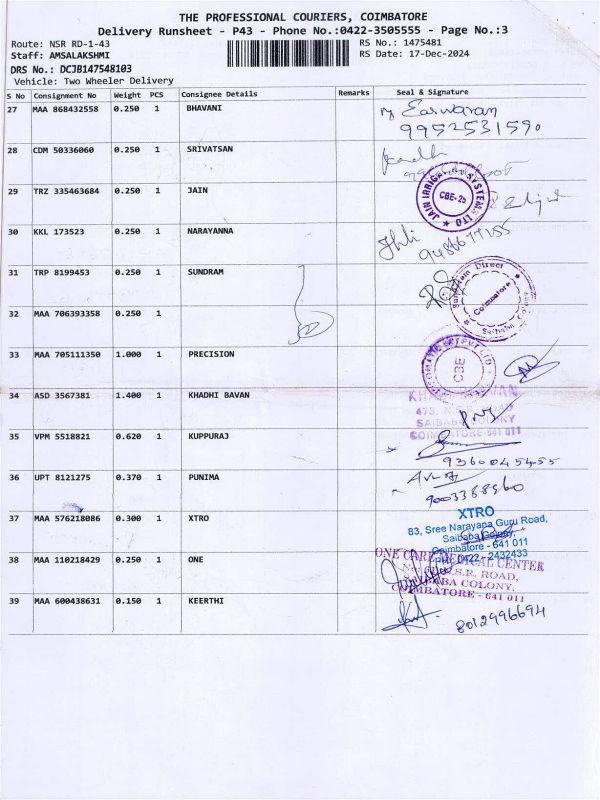 THE PROFESSIONAL COURIERS, COIMBATORE
Delivery Runsheet - P43 - Phone No.:0422-3505555 - Page No.:3
Route: NSR RD-1-43 RS No.: 1475481
Staff: AMSALAKSHMI RS Date: 17-Dec-2024
DRS No.: DCJB147548103
Vehicle: Two Wheeler Delivery
S No Consignment No Weight PCS Consignee Details Remarks Seal & Signature
27 MAA 868432558 0.250 1 BHAVANI Easwaran
9952531590
28 CDM 50336060 0.250 1 SRIVATSAN
29 TRZ 335463684 0.250 1 JAIN JAIN IRRIGATION SYSTEMS LTD CBE-25
30 KKL 173523 0.250 1 NARAYANNA
31 TRP 8199453 0.250 1 SUNDRAM Direct Coimbatore Saibaba
32 MAA 706393358 0.250 1
33 MAA 705111350 1.000 1 PRECISION PVT LTD CBE
34 ASD 3567381 1.400 1 KHADHI BAVAN
SAIBABA COLONY
COIMBATORE-641 011
35 VPM 5518821 0.620 1 KUPPURAJ
9360045455
36 UPT 8121275 0.370 1 PUNIMA
37 MAA 576218086 0.300 1 XTRO XTRO
83, Sree Narayana Guru Road,
Saibaba Colony,
Coimbatore - 641 011
0422-2432433
38 MAA 110218429 0.250 1 ONE ONE CARE MEDICAL CENTER
N.S.R. ROAD,
SAIBABA COLONY,
COIMBATORE - 641 011
39 MAA 600438631 0.150 1 KEERTHI
8012996694